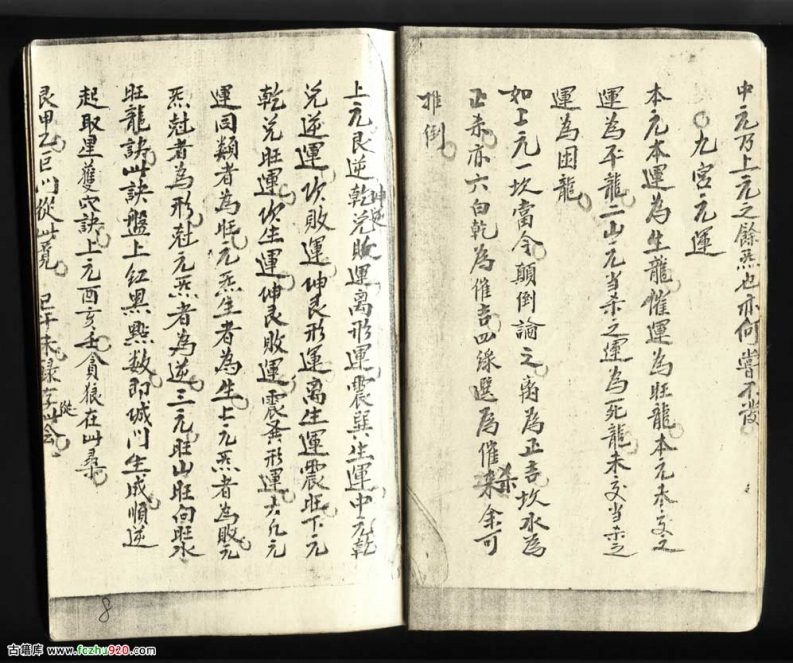 中元乃上元之餘炁也亦何嘗不發
九宮元運
本元本運為生龍催運為旺龍本元未交之
運為平龍二山元当杀之運為死龍未交当杀之
運為困龍
如上元一坎當令顛倒論之离為正吉坎水為
正杀亦六白乾為催吉四綠選為催杀余可
推倒
上元艮逆乾兑敗運离形運震巽坤生運中元乾
兑逆運坎敗運坤艮形運离生運震旺下元
乾兑旺運坎生運坤艮敗運震巽形運大凡元
運同類者為旺元炁生者為生上元炁者為敗元
炁尅者為形尅元炁者為逆三元旺山旺向旺水
旺龍訣此訣盤上紅黑點数即城门生成順逆
起取星獲穴訣上元酉亥壬貪狼在此尋
艮甲乙巨门從此覓 巳午未祿存從此会
8
古籍库 www.fczhu920.com